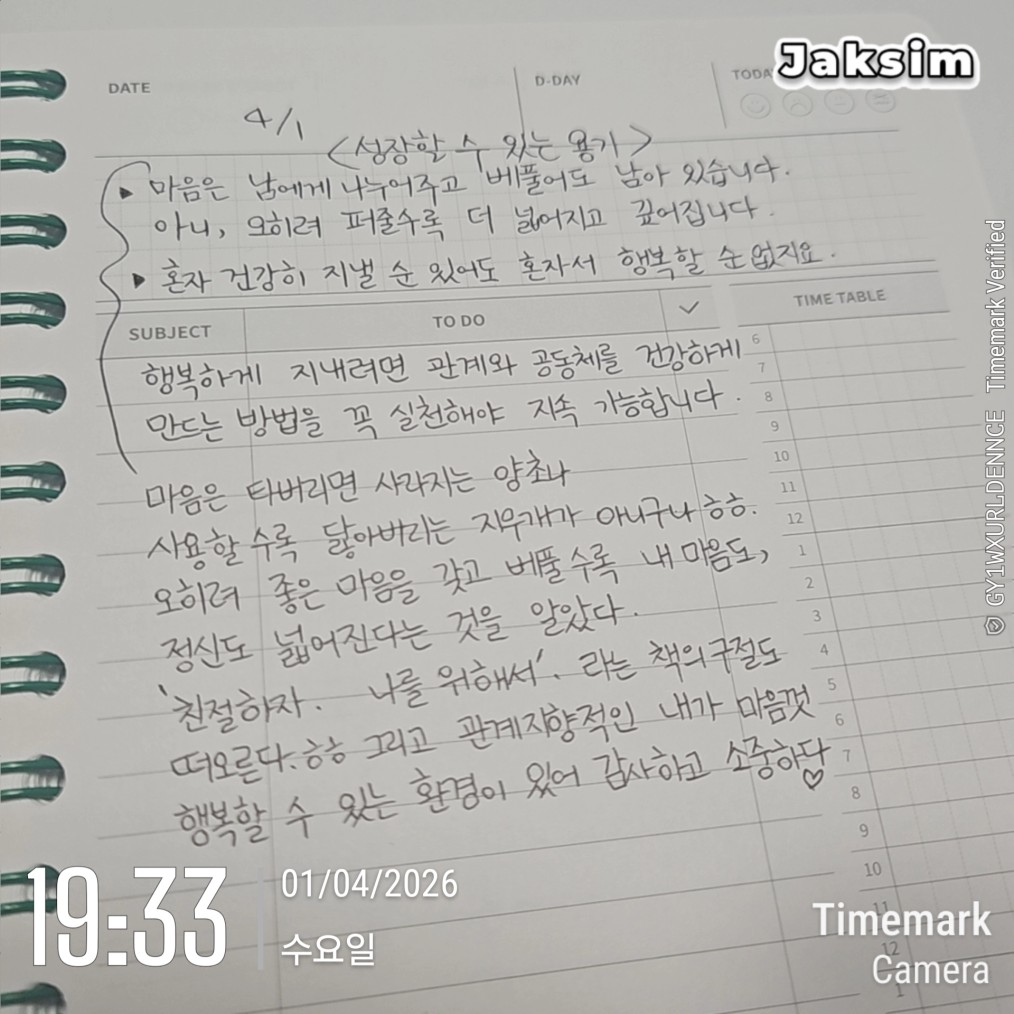 Jaksim
DATE
D-DAY
4/1
<성장할 수 있는 용기>
▸ 마음은 남에게 나누어주고 베풀어도 남아 있습니다.
아니, 오히려 퍼줄수록 더 넓어지고 깊어집니다.
▸ 혼자 건강히 지낼 순 있어도 혼자서 행복할 순 없지요.
SUBJECT
TO DO
TIME TABLE
행복하게 지내려면 관계와 공동체를 건강하게
만드는 방법을 꼭 실천해야 지속 가능합니다.
마음은 타버리면 사라지는 양초나
사용할수록 닳아버리는 지우개가 아니구나 ㅎㅎ.
오히려 좋은 마음을 갖고 베풀수록 내 마음도,
정신도 넓어진다는 것을 알았다.
'친절하자. 나를 위해서'. 라는 책의 구절도
떠오른다.ㅎㅎ 그리고 관계지향적인 내가 마음껏
행복할 수 있는 환경이 있어 감사하고 소중하다♡
6
7
8
9
10
11
12
1
2
3
4
5
6
7
8
9
10
11
12
1
19:33
01/04/2026
수요일
Timemark
Camera
GY1WXURLDENNCE Timemark Verified